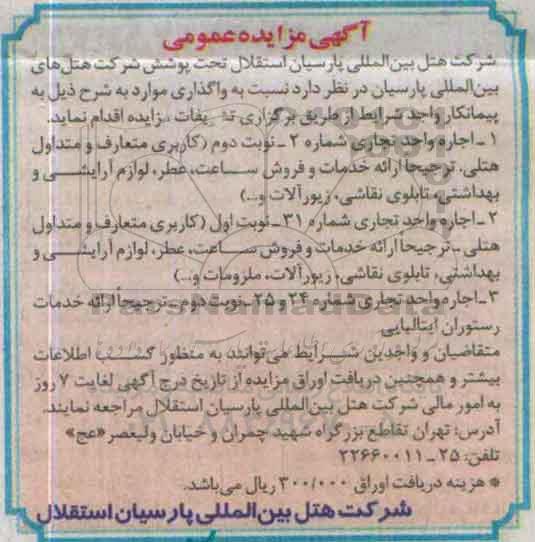 آگهی مزایده عمومی
شرکت هتل بین‌المللی پارسیان استقلال تحت پوشش شرکت هتل‌های
بین‌المللی پارسیان در نظر دارد نسبت به واگذاری موارد به شرح ذیل به
پیمانکار واجد شرایط از طریق برگزاری تشریفات مزایده اقدام نماید.
۱ـ اجاره واحد تجاری شماره ۲ ـ نوبت دوم (کاربری متعارف و متداول
هتلی. ترجیحاً ارائه خدمات و فروش ساعت، عطر، لوازم آرایشی و
بهداشتی، تابلوی نقاشی، زیورآلات و...)
۲ـ اجاره واحد تجاری شماره ۳۱ـ نوبت اول (کاربری متعارف و متداول
هتلی ـ ترجیحاً ارائه خدمات و فروش ساعت، عطر، لوازم آرایشی و
بهداشتی، تابلوی نقاشی، زیورآلات، ملزومات و...)
۳ـ اجاره واحد تجاری شماره ۲۴ و ۲۵ ـ نوبت دوم ـ ترجیحاً ارائه خدمات
رستوران ایتالیایی
متقاضیان و واجدین شرایط می‌توانند به منظور کسب اطلاعات
بیشتر و همچنین دریافت اوراق مزایده از تاریخ درج آگهی لغایت ۷ روز
به امور مالی شرکت هتل بین‌المللی پارسیان استقلال مراجعه نمایند.
آدرس: تهران تقاطع بزرگراه شهید چمران و خیابان ولیعصر «عج»
تلفن: ۲۵ ـ ۲۲۶۶۰۰۱۱
* هزینه دریافت اوراق ۳۰۰/۰۰۰ ریال می‌باشد.
شرکت هتل بین‌المللی پارسیان استقلال
ParsNamadData